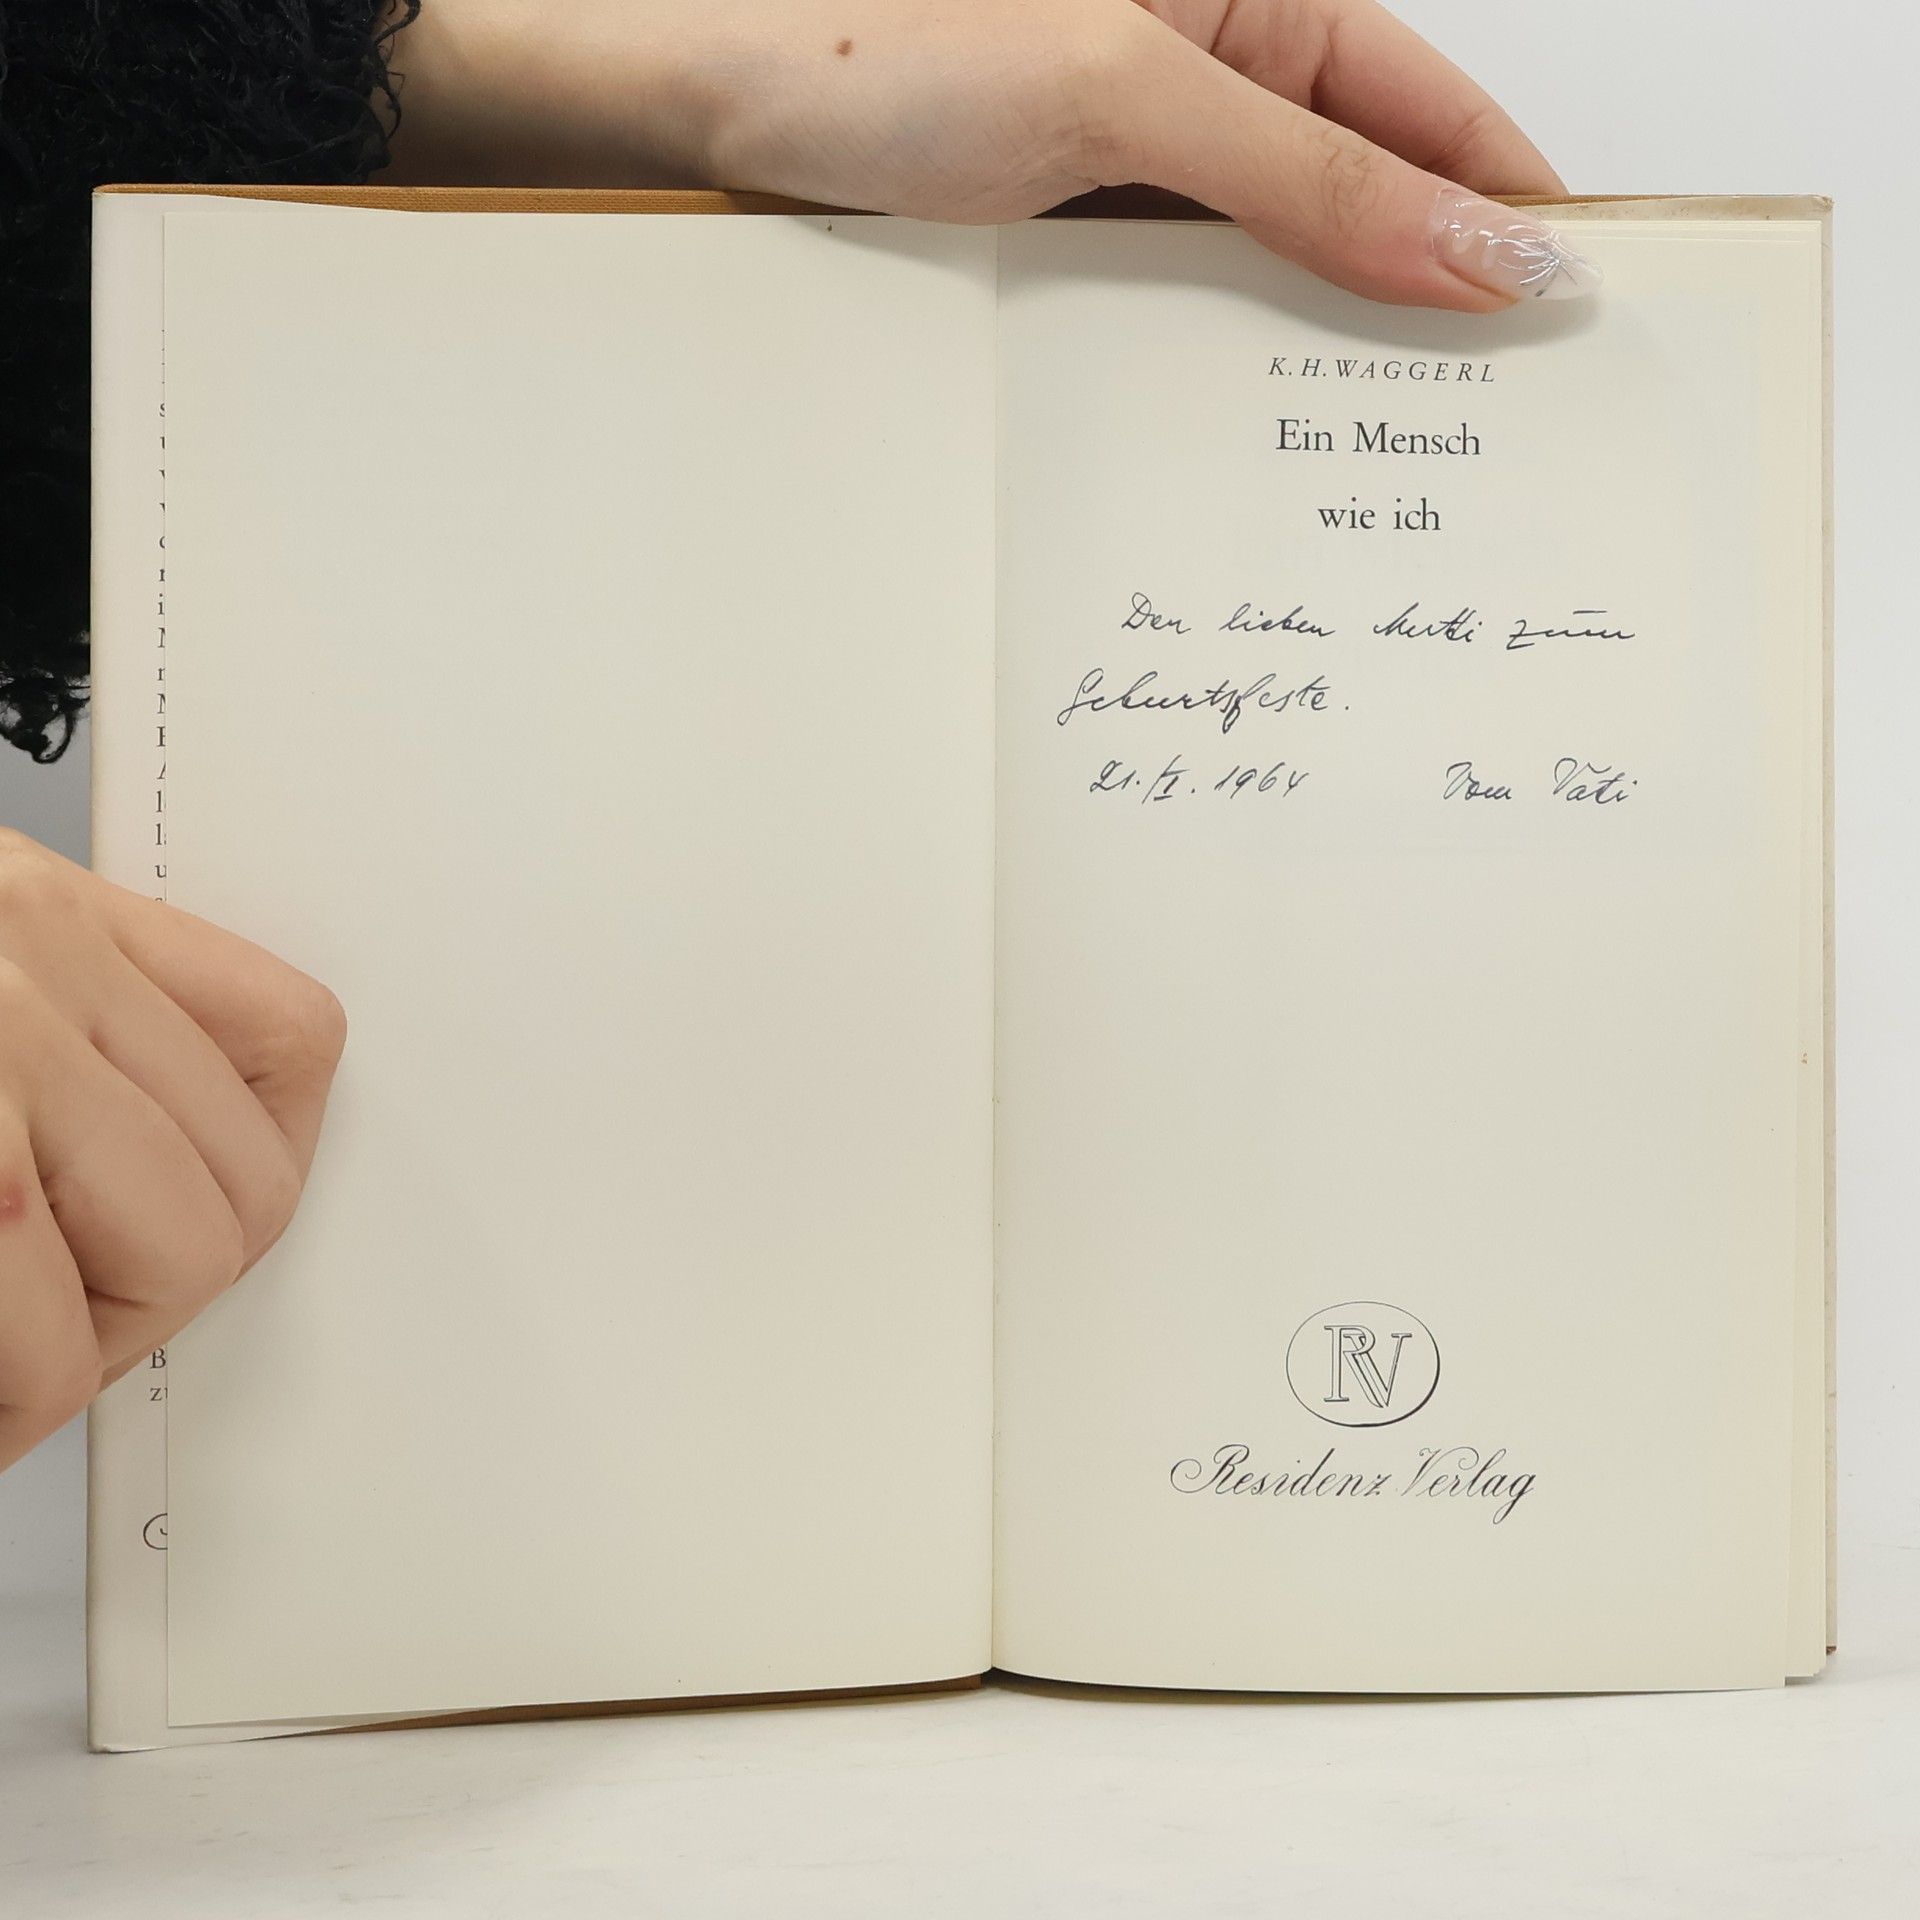 K. H. WAGGERL
Ein Mensch
wie ich
Der lieben Mutti zum
Geburtsfeste.
21./I. 1964 Vom Vati
RV
Residenz Verlag
B
zu